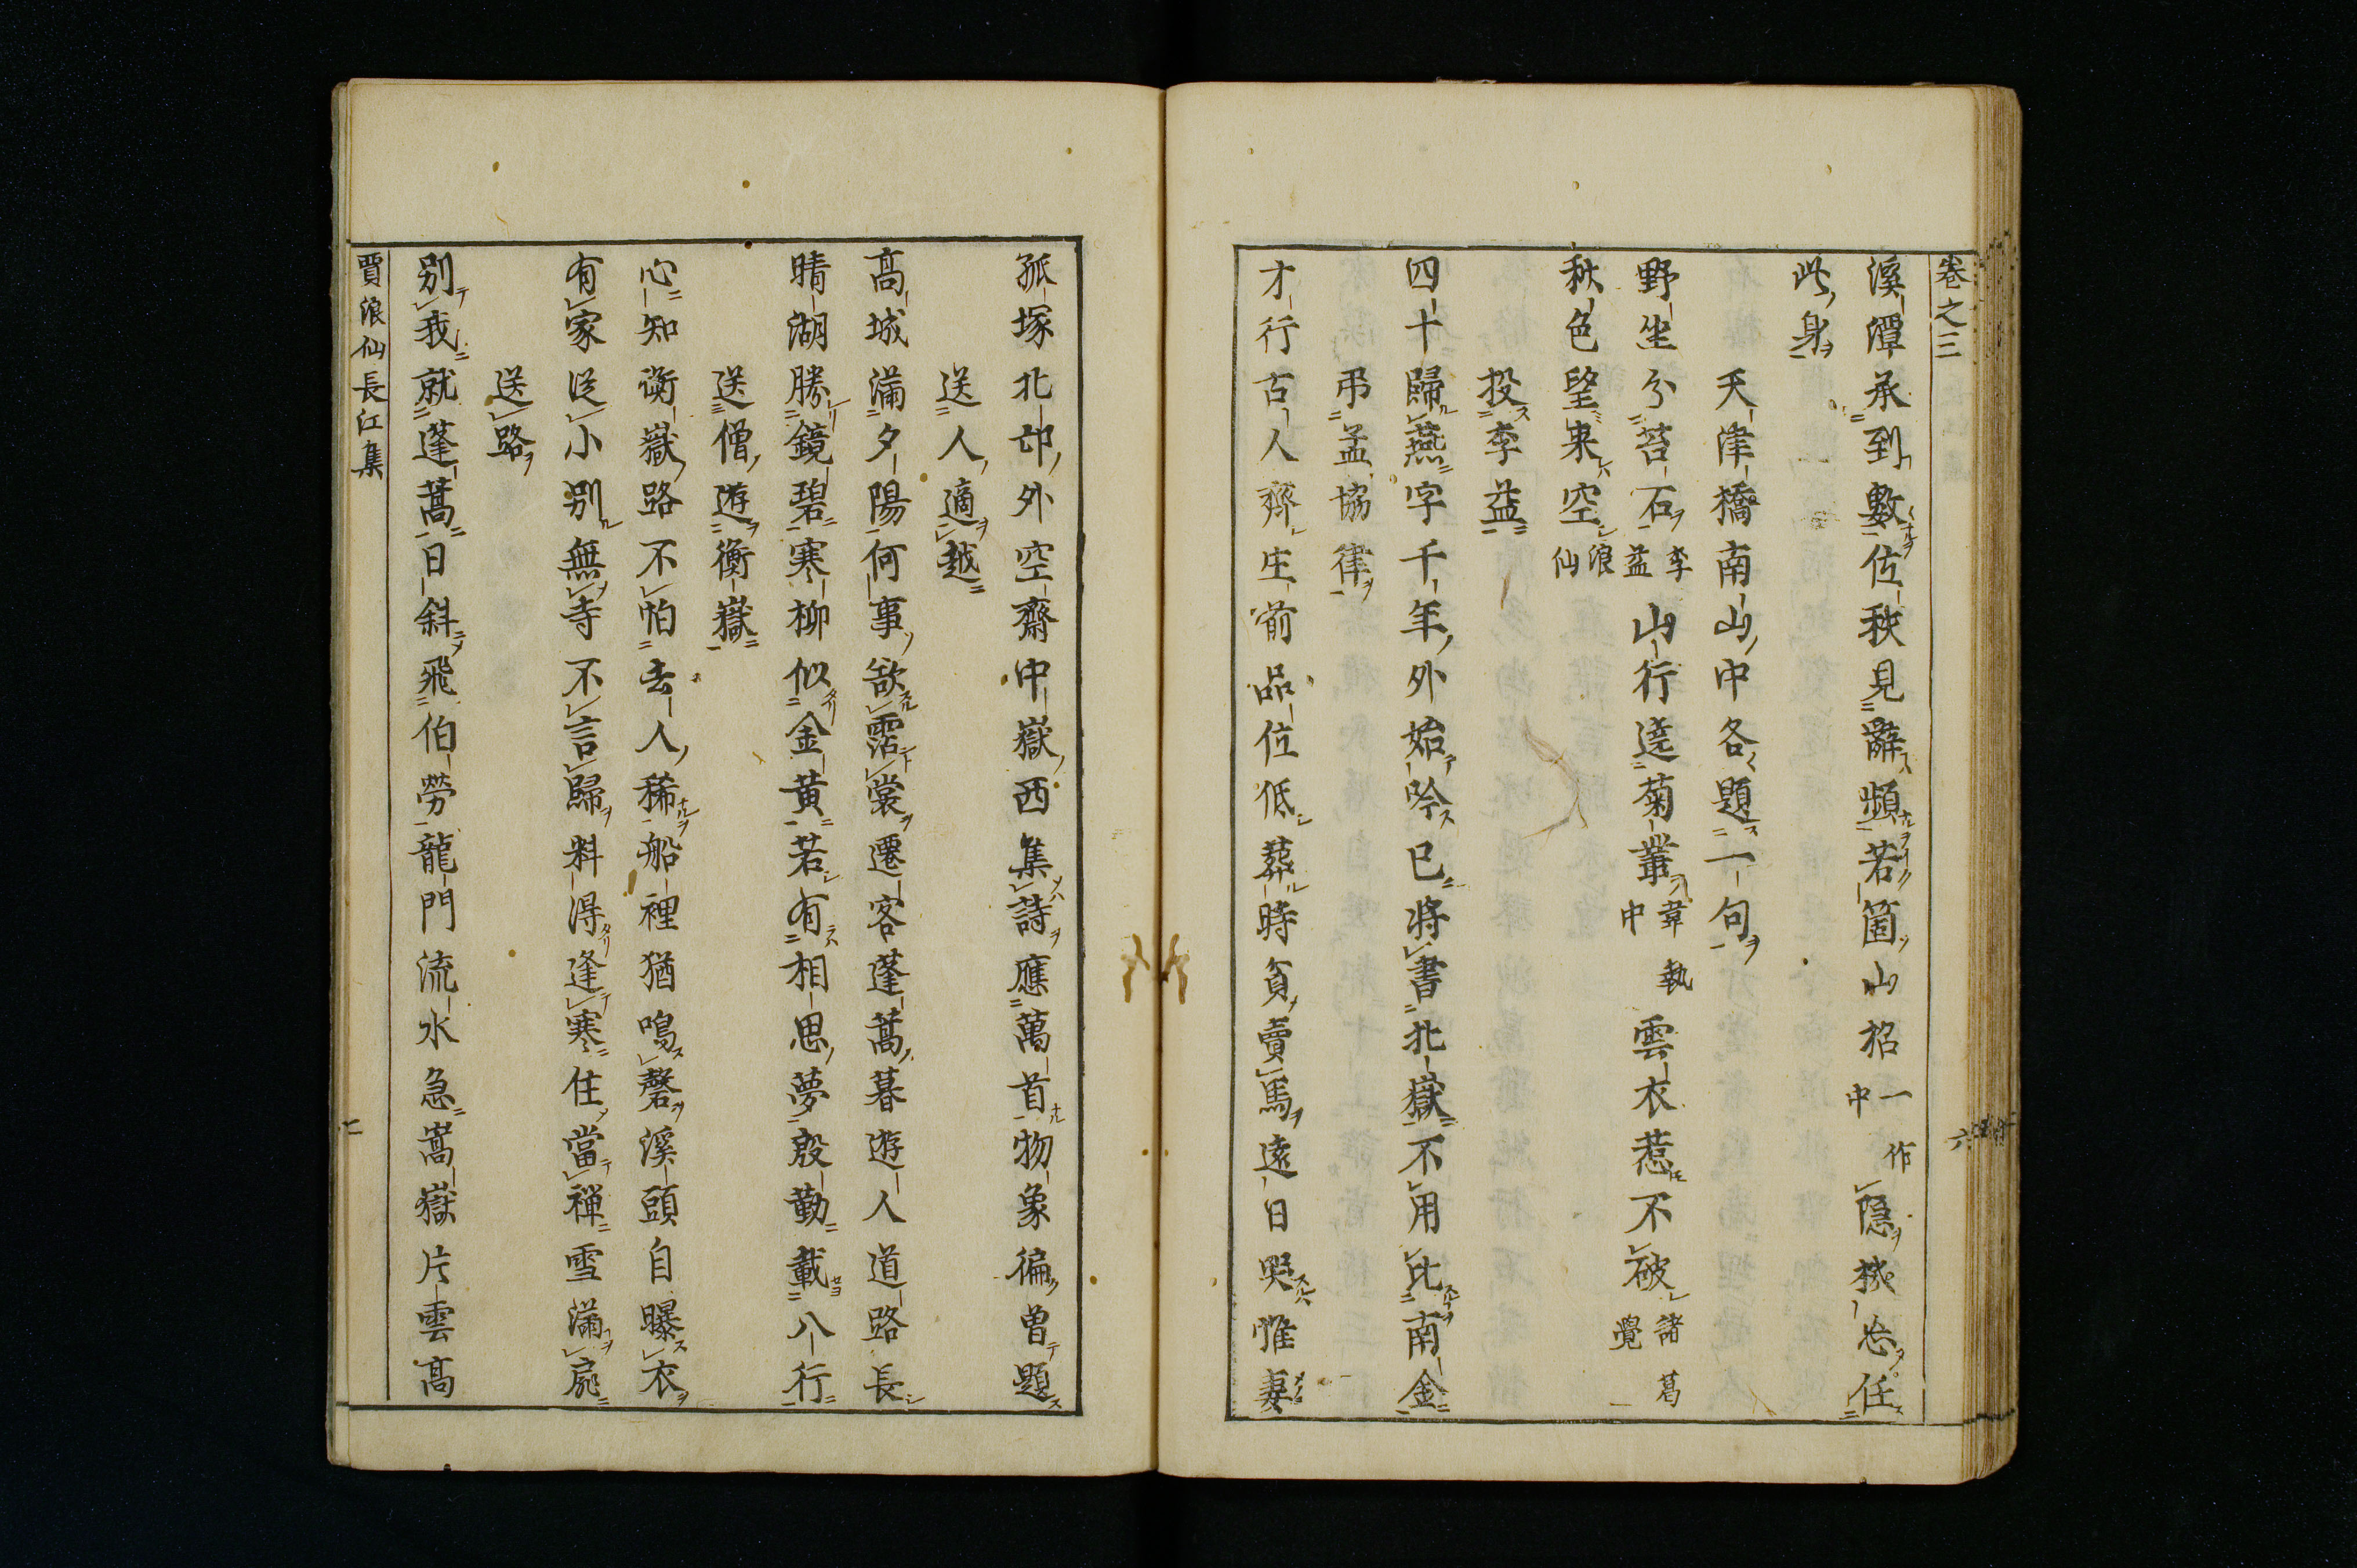 卷之三
六
溪潭承到數位秋見辭頻若箇山招一作中隠機忩任
此身
天津橋南山中各題一句
野坐分苔石李益山行遶菊叢韋執中雲衣惹不破諸葛覺
秋色望来空浪仙
投李益
四十歸燕字千年外始吟已將書北嶽不用比南金
弔孟協律
才行古人齊生前品位低葬時貧賣馬遠日哭惟妻
孤塚北邙外空齋中嶽西集詩應萬首物象徧曽題
送人適越
髙城滿夕陽何事欲霑裳遷客蓬蒿暮遊人道路長
晴湖勝鏡碧寒柳似金黄若有相思夢殷勤載八行
送僧遊衡嶽
心知衡嶽路不怕去人稀船裡猶鳴磬溪頭自曝衣
有家從小别無寺不言歸料得逢寒住當禪雪滿扉
送路
别我就蓬蒿日斜飛伯勞龍門流水急嵩嶽片雲髙
賈浪仙長江集